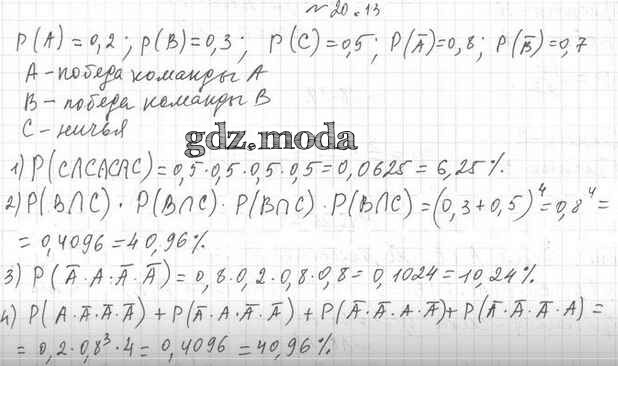 № 20.13
P(A)=0,2; P(B)=0,3; P(C)=0,5; P(Ā)=0,8; P(B̄)=0,7
A-победа команды A
B-победа команды B
C-ничья
gdz.moda
1) P(C∩C∩C∩C)=0,5·0,5·0,5·0,5=0,0625=6,25%.
2) P(B∩C)·P(B∩C)·P(B∩C)·P(B∩C)=(0,3+0,5)⁴=0,8⁴=
=0,4096=40,96%.
3) P(Ā·A·Ā·Ā)=0,8·0,2·0,8·0,8=0,1024=10,24%.
4) P(A·Ā·Ā·Ā)+P(Ā·A·Ā·Ā)+P(Ā·Ā·A·Ā)+P(Ā·Ā·Ā·A)=
=0,2·0,8³·4=0,4096=40,96%